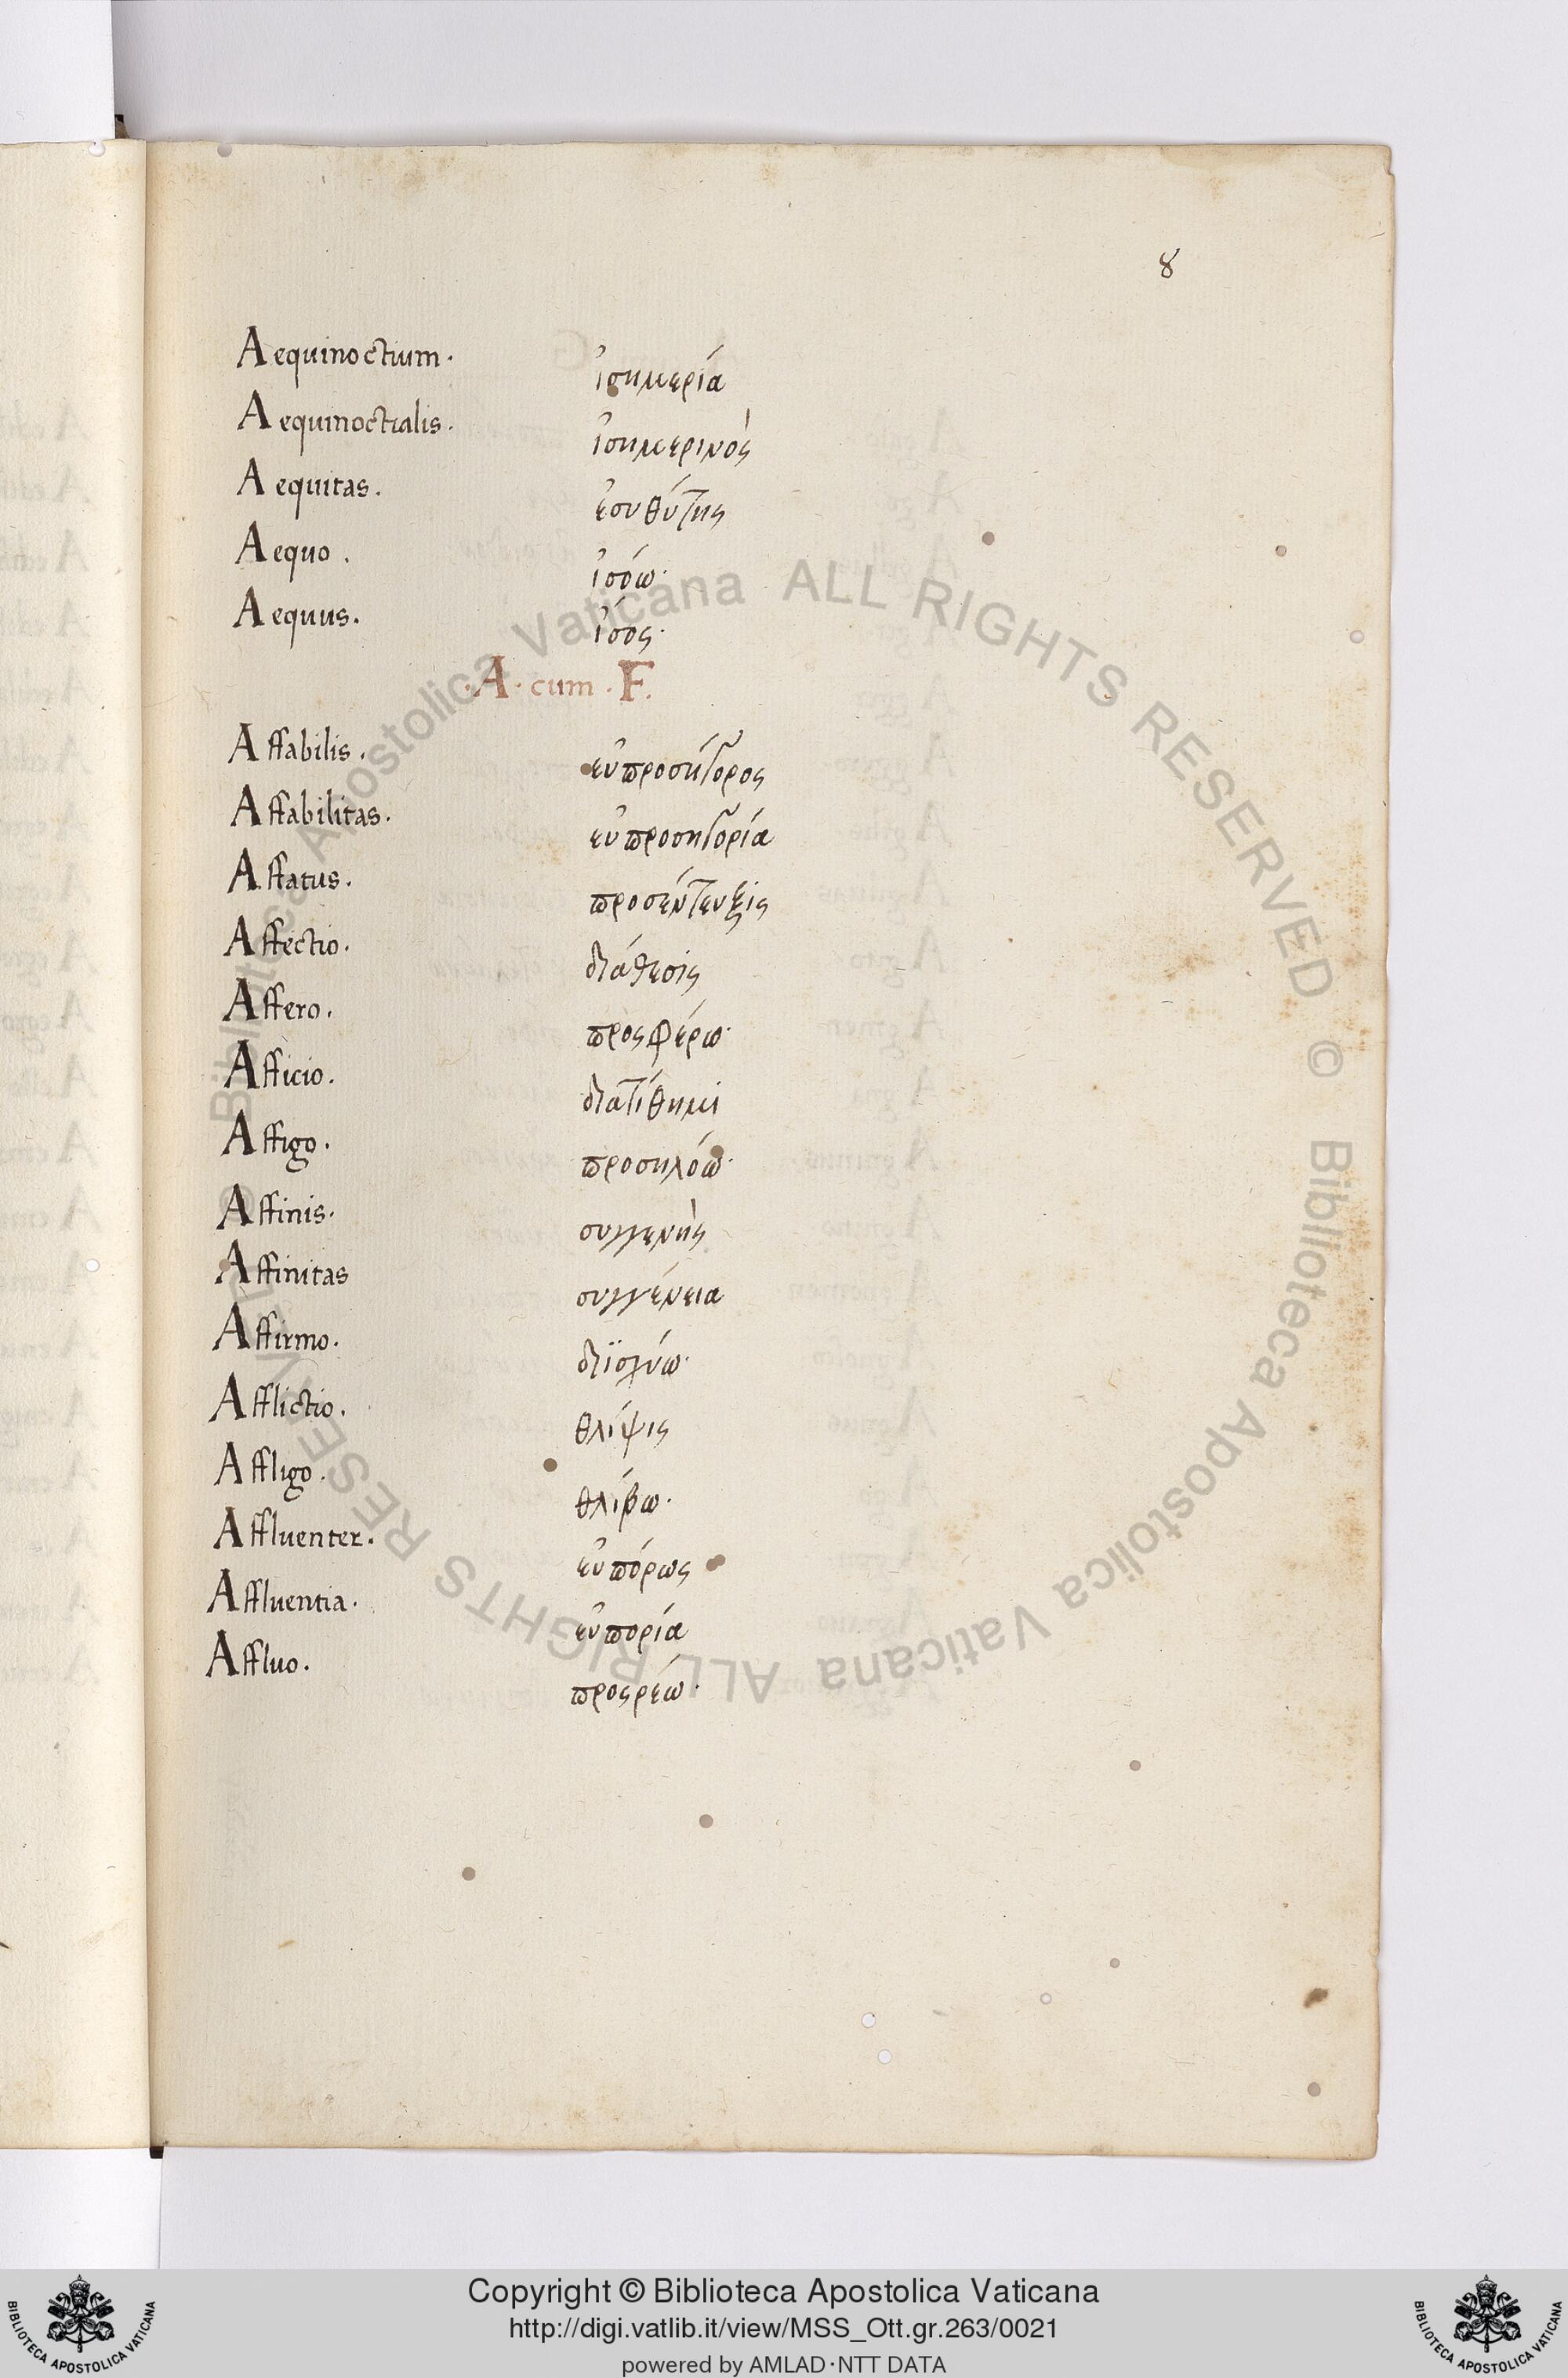 8
Aequinoctium. ἰσημερία
Aequinoctialis. ἰσημερινὸς
Aequitas.
Aequo. ἰσόω·
Aequus. ἴσος·
·A· cum ·F.
Affabilis. εὐπροσήγορος
Affabilitas. εὐπροσηγορία
Affatus. προσέντευξις
Affectio. διάθεσις
Affero. προςφέρω·
Afficio. διατίθημι
Affigo. προσηλόω·
Affinis. συγγενὴς
Affinitas συγγένεια
Affirmo. διϊσχύω·
Afflictio. θλίψις
Affligo. θλίβω·
Affluenter. εὐπόρως
Affluentia. εὐπορία
Affluo. προςρέω·
Biblioteca Apostolica Vaticana ALL RIGHTS RESERVED © Biblioteca Apostolica Vaticana ALL RIGHTS RESERVED ©
Copyright © Biblioteca Apostolica Vaticana
http://digi.vatlib.it/view/MSS_Ott.gr.263/0021
powered by AMLAD·NTT DATA
BIBLIOTECA APOSTOLICA VATICANA
BIBLIOTECA APOSTOLICA VATICANA